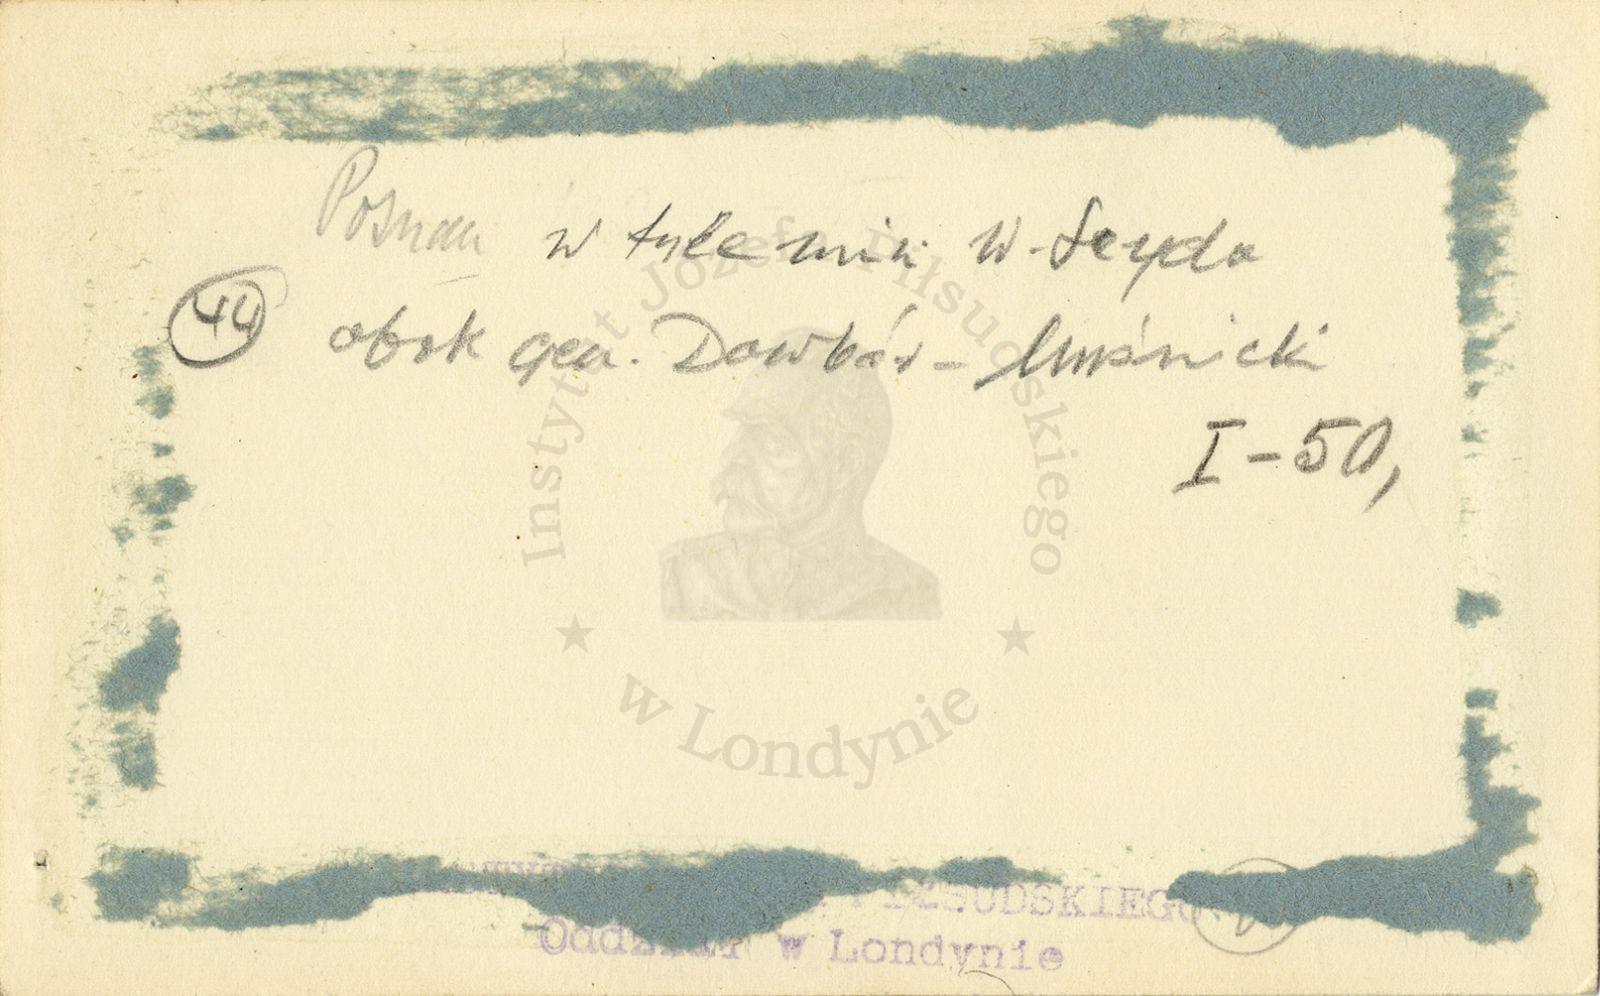 Poznań w tyle min. W. Seyda
44 obok gen. Dowbór-Muśnicki
I-50,
Instytut Józefa Piłsudskiego
w Londynie
PIŁSUDSKIEGO
Oddział w Londynie